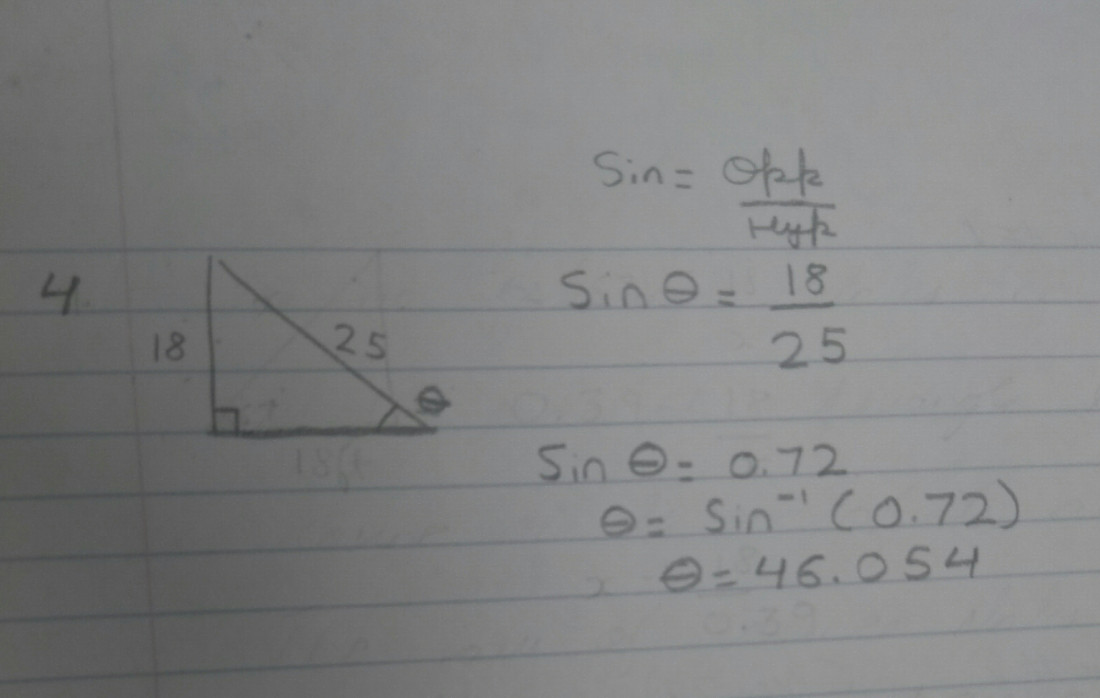 Sin = Opp
Hyp
4.
18
25
θ
Sin θ = 18
25
Sin θ = 0.72
θ = Sin⁻¹ (0.72)
θ = 46.054